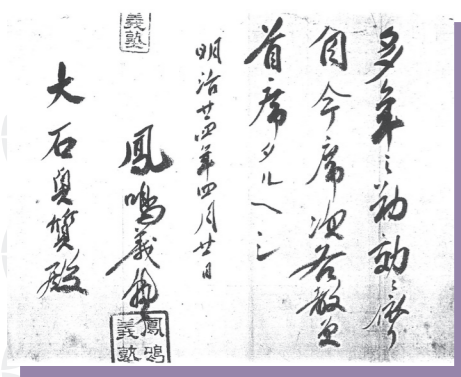 多年之勤効
自今席次各教員
首席タルヘシ
明治廿四年四月廿日
鳳鳴義塾
鳳鳴義塾
義塾
大石 質殿